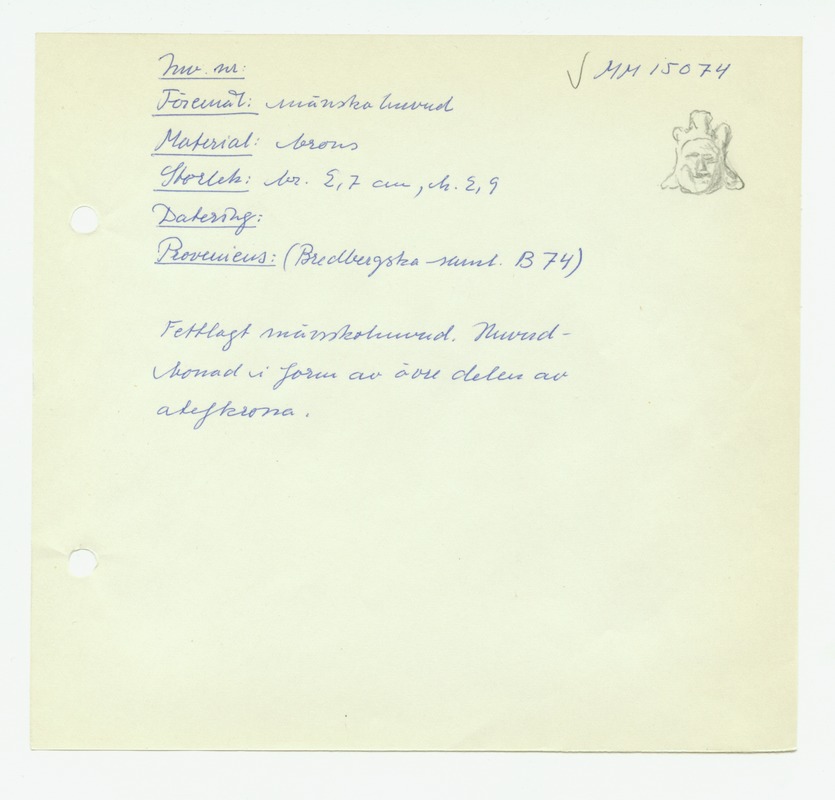 Inv. nr: √ MM 15074
Föremål: människohuvud
Material: brons
Storlek: br. 2,7 cm, h. 2,9
Datering:
Proveniens: (Bredbergska saml. B 74)
Fettlagt människohuvud. Huvud-
bonad i form av övre delen av
atefkrona.